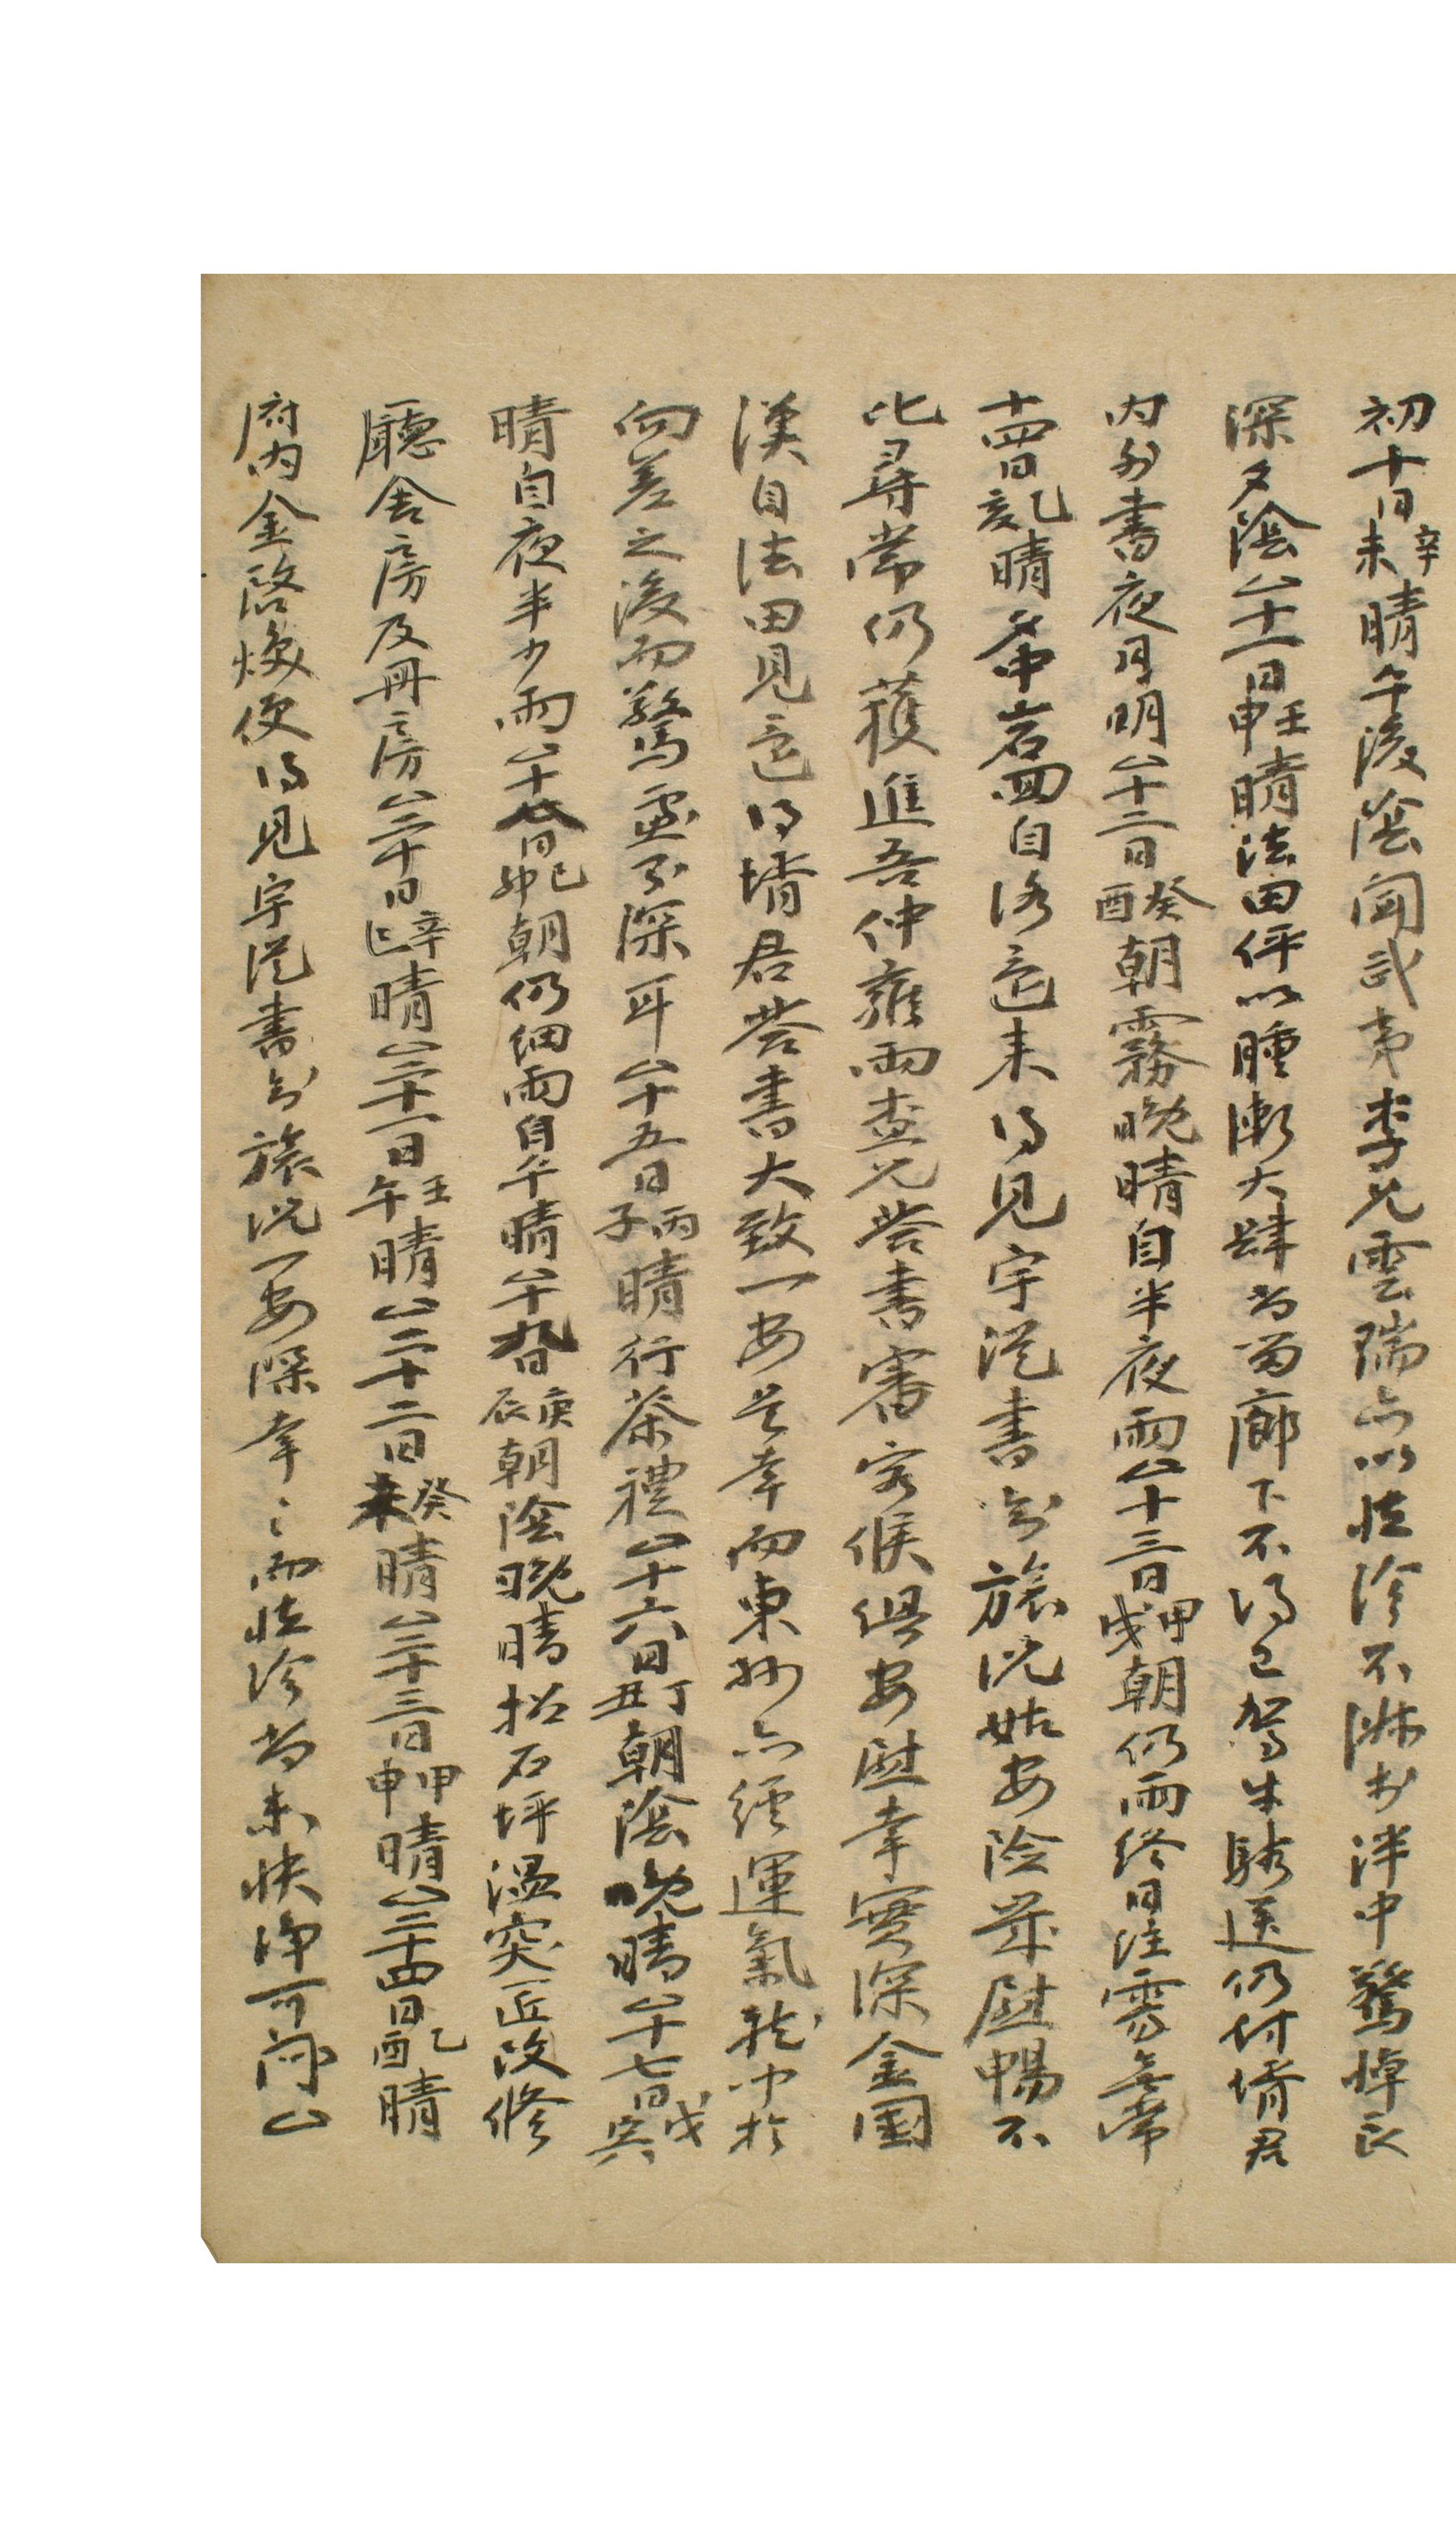 初十日辛未晴午後陰聞武夷李兄雲瑞亦以怪沴不淑於泮中驚悼良
深夕陰厶十一日壬申晴法田伻以腫漸大肆爲留廊下不得已駕牛駄送仍付壻君
內外書夜月明厶十二日癸酉朝霧晩晴自半夜雨厶十三日甲戌朝仍雨終日注雱無常
十四日乙亥晴希中岩回自洛還未得見宇從書知旅況姑安險歲慰暢不
比尋常仍獲進吾仲雍雨壺兄答書審客候俱安慰幸實深金国
漢自法田見還得壻君答書大致一安是幸而東姊亦經運氣於中於
向差之後而驚慮不深耳厶十五日丙子晴行茶禮厶十六日丁丑朝陰晩晴厶十七日戊寅
晴自夜半少雨厶十八日己卯朝仍細雨自午晴厶十九日庚辰朝陰晩晴招石坪溫突匠改修
廳舍房及冊房厶二十日辛巳晴厶二十一日壬午晴厶二十二日癸未晴厶二十三日甲申晴厶二十四日乙酉晴
府內金啓煥便得見宇從書知旅況一安深幸〻而怪沴尙未快淨可悶厶